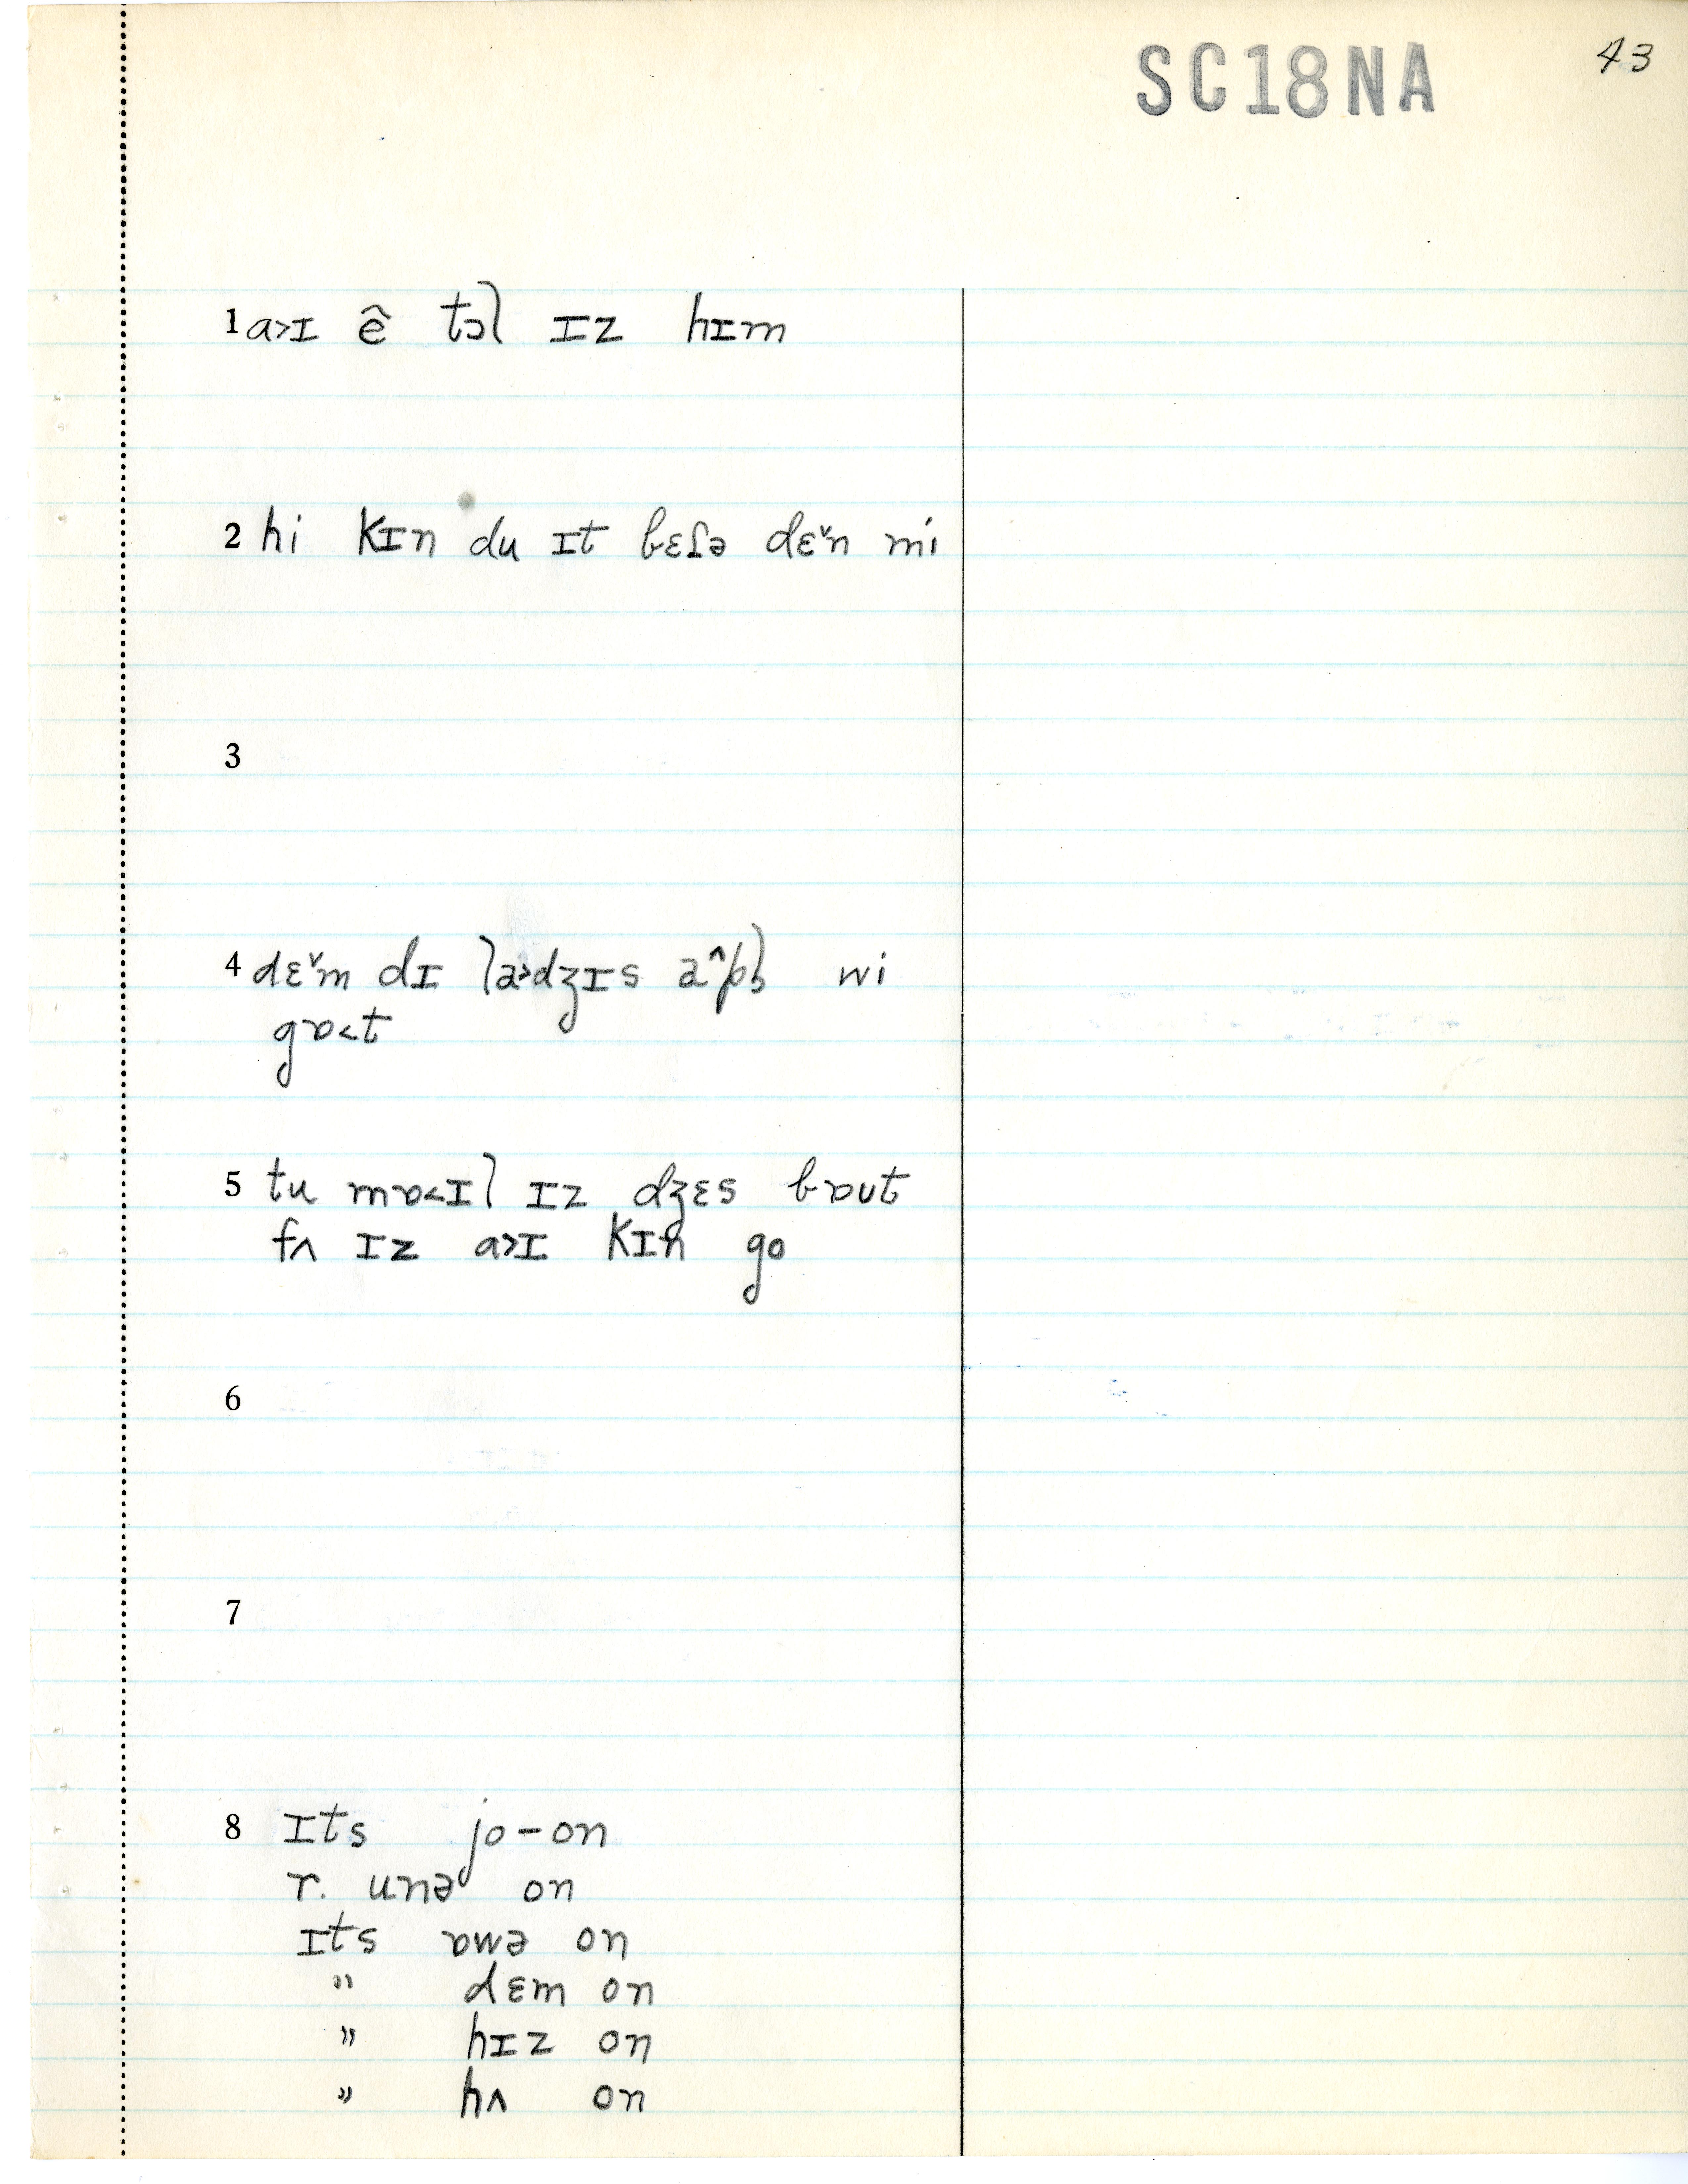 SC18NA 43
1 a>ɪ ê tɔl ɪz hɪm
2 hi kɪn du ɪt bɛɾə dɛˇn mi
3
4 dɛˇm dɪ la>dʒɪs a^pl̩ wi
gɒ<t
5 tu mɒ<ɪl ɪz dʒɛs bɒut
fʌ ɪz a>ɪ kɪn go
6
7
8 ɪts jo-on
r. unə on
ɪts ɒwə on
" dɛm on
" hɪz on
" hʌ on